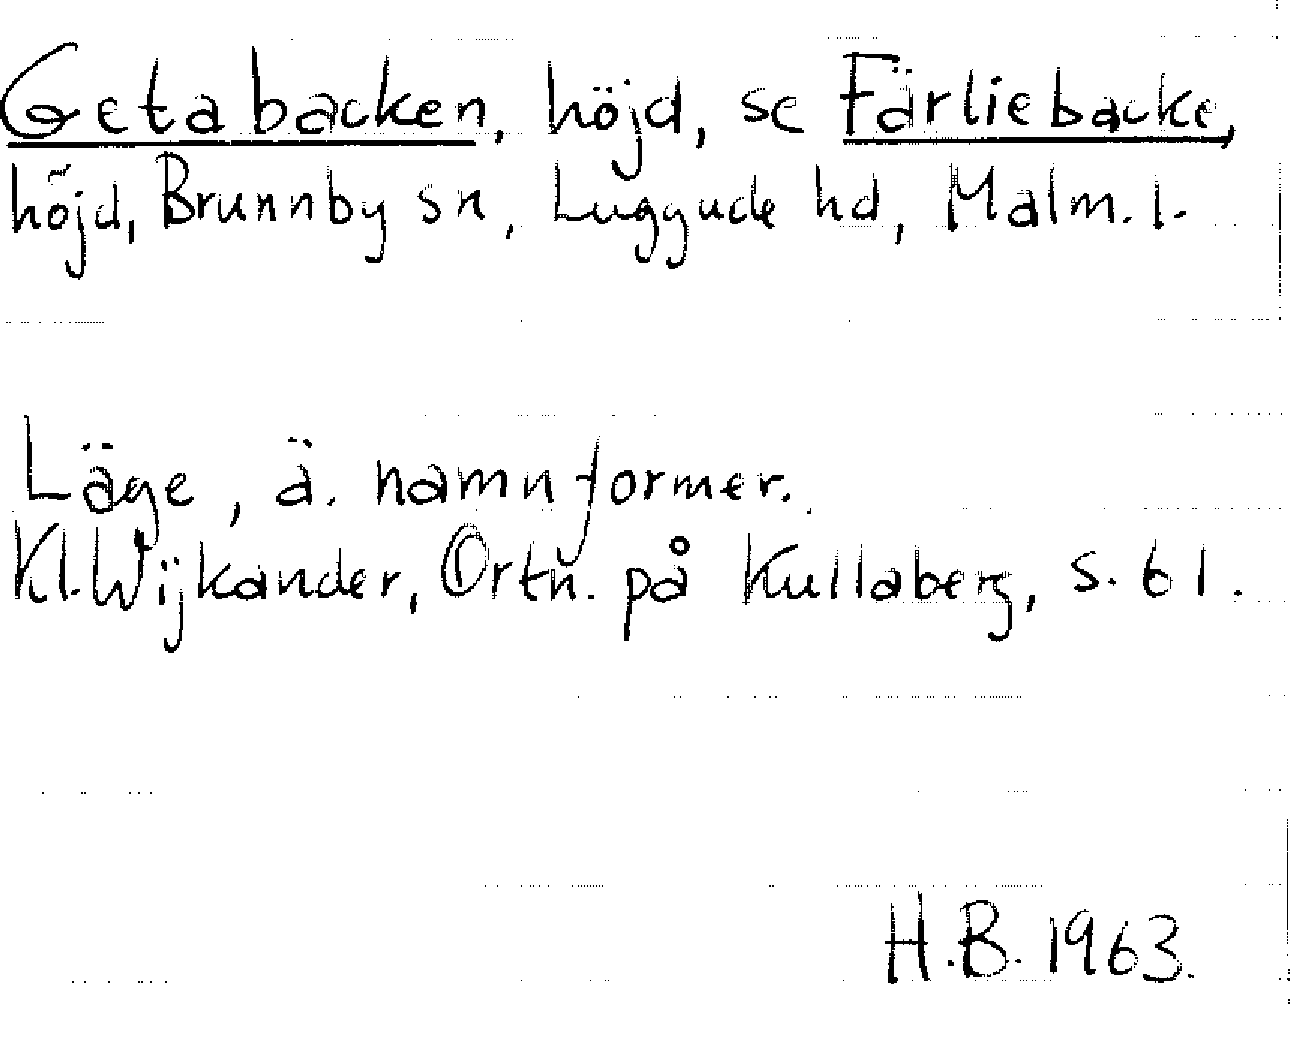 Getabacken, höjd, se Färliebacke,
höjd, Brunnby sn, Luggude hd, Malm. l.
Läge, ä. namnformer.
Kl. Wijkander, Ortn. på Kullaberg, s. 61.
H.B. 1963.